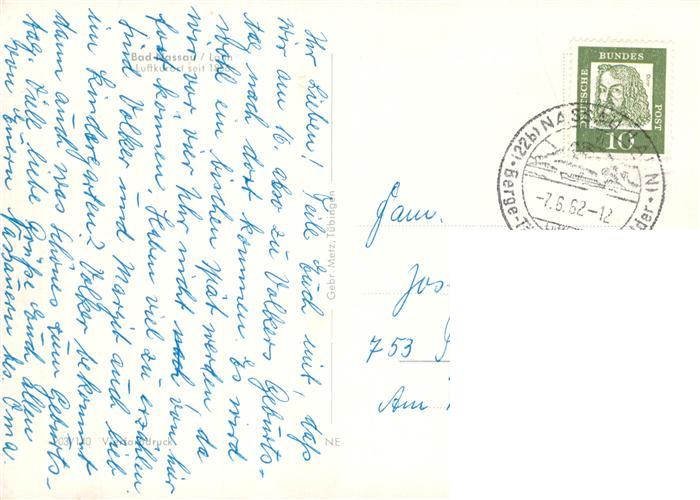 Bad Nassau / Lahn
Luftkurort seit
Ihr Lieben! Teile Euch mit, daß
wir am 16. also zu Volkers Geburts-
tag nach dort kommen. Es wird
wohl ein bischen spät werden da
wir vor vier Uhr nicht von hier
fort können. Haben viel zu erzählen
Sind Volker und Margit auch lieb
im Kindergarten? Volker bekommt
dann auch was schönes zum Geburts-
tag. Viele liebe Grüße Euch allen
von Euern Nassauern des Oma.
Gebr. Metz, Tübingen
NE
DEUTSCHE BUNDES POST
10
(22b) NASSAU
-7.6.62-12
Berge
Fam.
Jos
753
Am